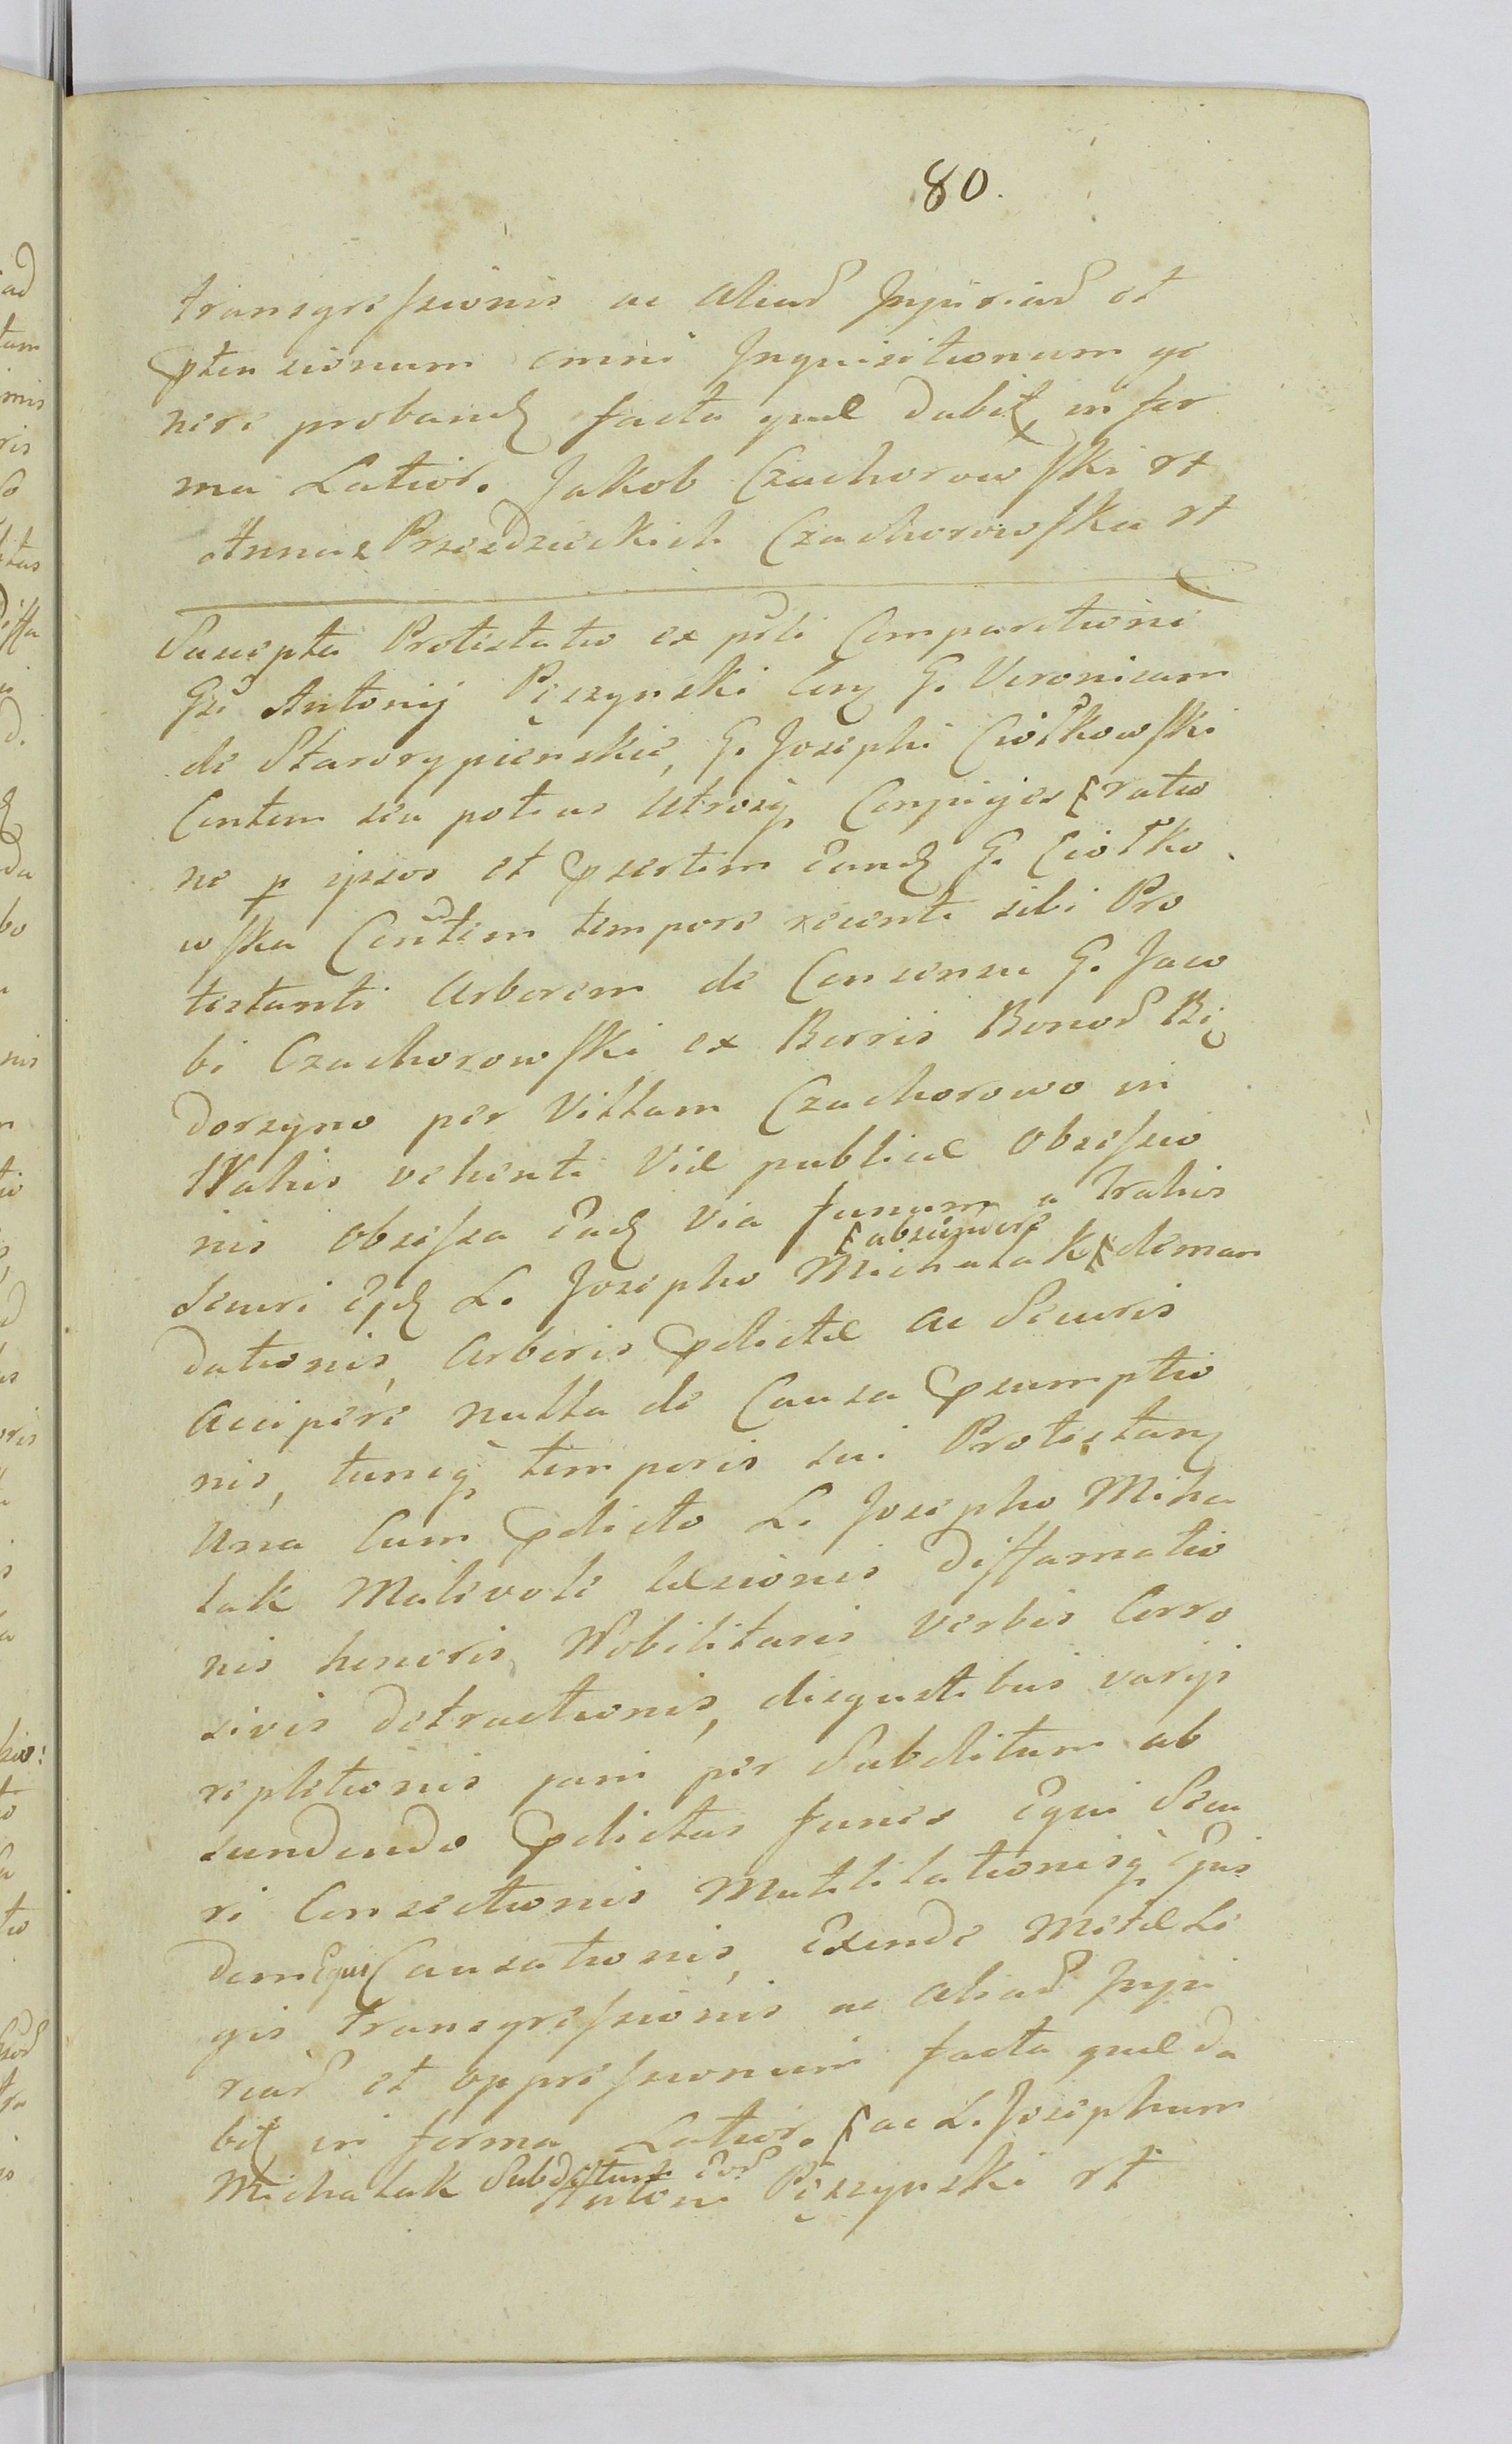 80.
transgressionis ac aliar Injuriar et
ptensionum omni Inquisitionum ge
nere proband facta quæ dabit in for
ma Latior. Jakob Czachorowski rt
Anna z Przezdzieckich Czachorowska rt
Suscepta Protestatio ex psti Comparitione
Gsi Antonij Pęszynski Con G. Veronicam
de Starorypienskie, G. Josephi Ciołkowski
Contem seu potius Utrosq Conjuges ratio
ne p ipsos et psertim Eand G. Ciołko
wska Contem tempore recenti sibi Pro
testanti Arborem de Consensu G. Jaco
bi Czachorowski ex Borris Bonor Bę
dorzyno per Villam Czachorowo in
Trahis vehenti Viæ publicæ Obsessio
nis Obsessa Ead via funum a trahis
abscindere
Securi Ejd L. Josepho Michalak deman
dationis, Arboris pdictæ ac Securis
Accipere nulla de Causa psumptio
nis, tuncq temporis sui Protestan
Una Cum pdicto L. Josepho Micha
lak Malevole læsionis Diffamatio
nis honoris Nobilitaris verbis Corro
sivis Detractionis, disgustibus varijs
repletionis jam per Subditum ab
scindendo pdictas funes Equi Secu
ri Consectionis Mutilationisq Ejus
dem Equi Causationis, Exinde Metæ Le
gis transgressionis ac aliar Inju
riar et oppressionum facta quæ da
bit in forma Latior. ac L. Josephum
Michalak Subditum Eor Antoni Pęszynski rt